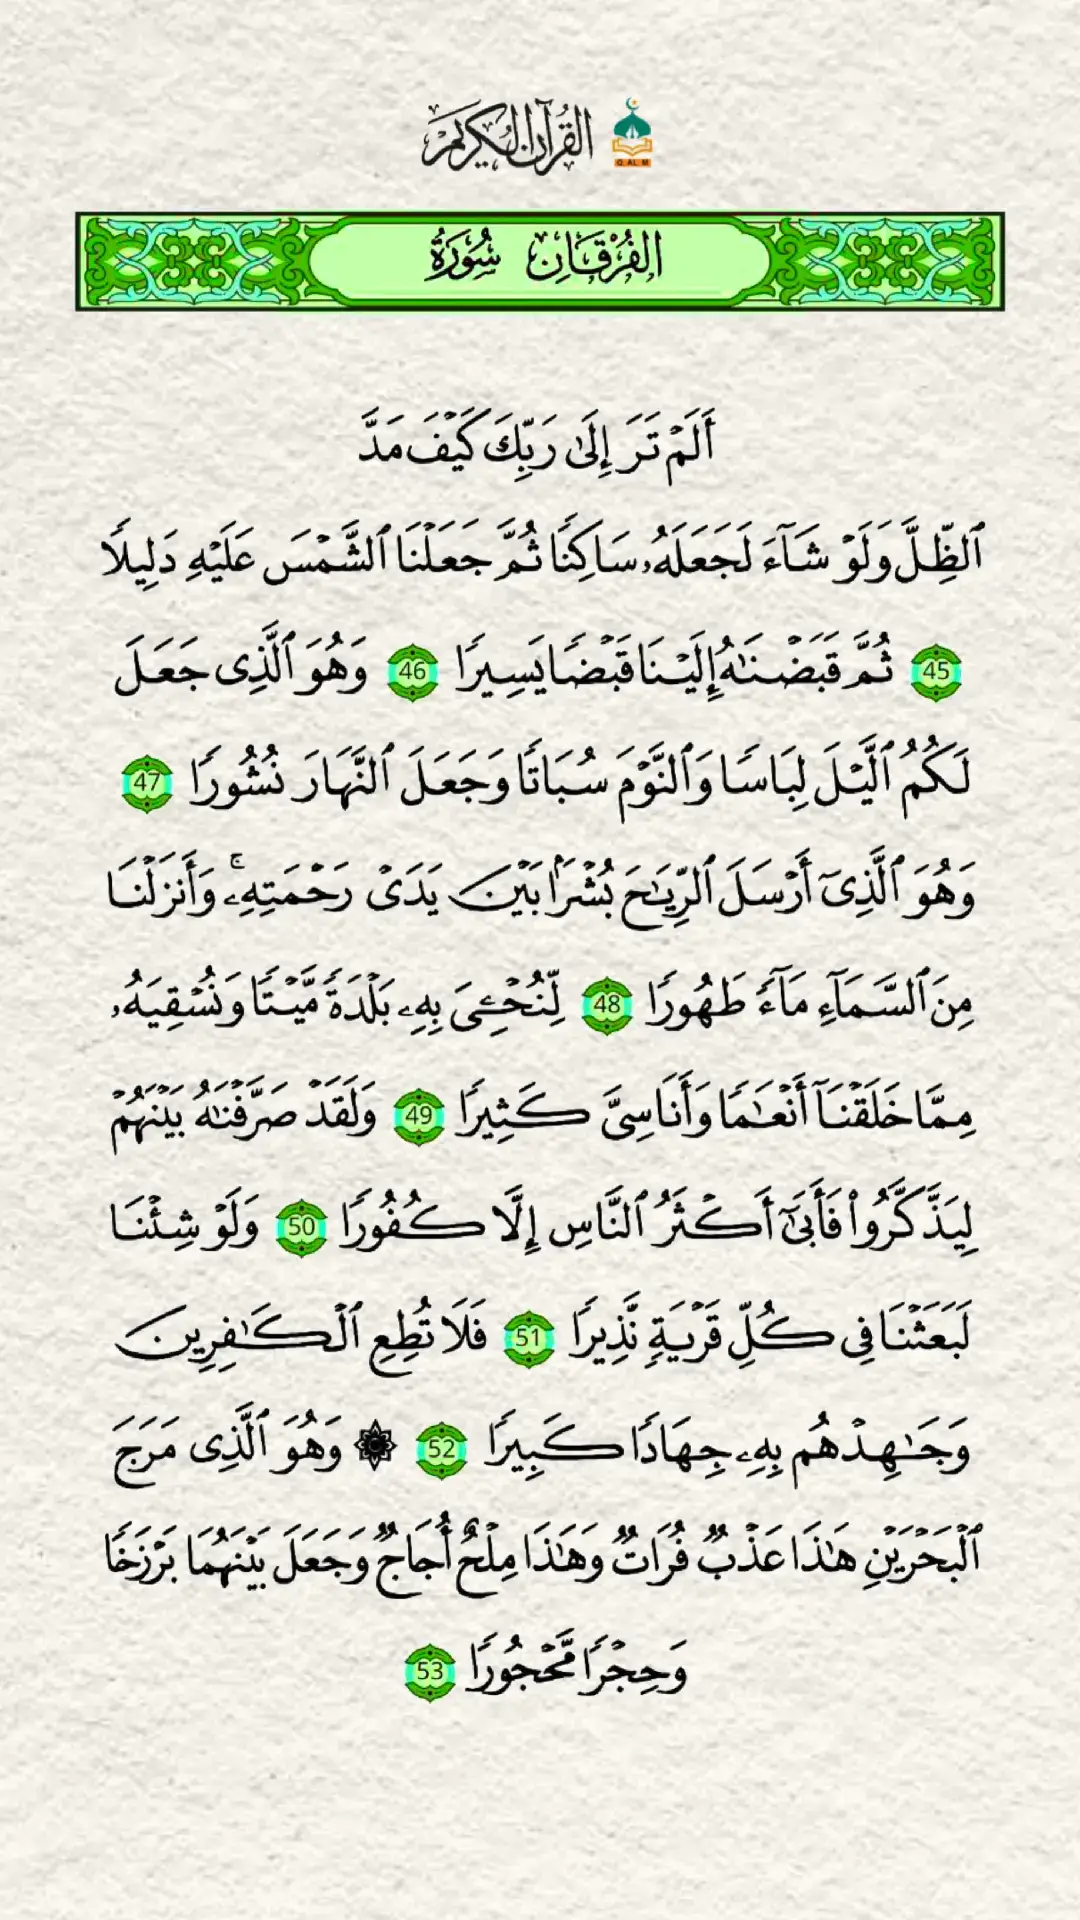 القرآن الكريم
Q AL M
الفُرْقَانِ سُورَةُ
أَلَمْ تَرَ إِلَىٰ رَبِّكَ كَيْفَ مَدَّ
ٱلظِّلَّ وَلَوْ شَآءَ لَجَعَلَهُۥ سَاكِنًا ثُمَّ جَعَلْنَا ٱلشَّمْسَ عَلَيْهِ دَلِيلًا
45 ثُمَّ قَبَضْنَٰهُ إِلَيْنَا قَبْضًا يَسِيرًا 46 وَهُوَ ٱلَّذِى جَعَلَ
لَكُمُ ٱلَّيْلَ لِبَاسًا وَٱلنَّوْمَ سُبَاتًا وَجَعَلَ ٱلنَّهَارَ نُشُورًا 47
وَهُوَ ٱلَّذِىٓ أَرْسَلَ ٱلرِّيَٰحَ بُشْرًۢا بَيْنَ يَدَىْ رَحْمَتِهِۦ ۚ وَأَنزَلْنَا
مِنَ ٱلسَّمَآءِ مَآءً طَهُورًا 48 لِّنُحْۦِىَ بِهِۦ بَلْدَةً مَّيْتًا وَنُسْقِيَهُۥ
مِمَّا خَلَقْنَآ أَنْعَٰمًا وَأَنَاسِىَّ كَثِيرًا 49 وَلَقَدْ صَرَّفْنَٰهُ بَيْنَهُمْ
لِيَذَّكَّرُوا۟ فَأَبَىٰٓ أَكْثَرُ ٱلنَّاسِ إِلَّا كُفُورًا 50 وَلَوْ شِئْنَا
لَبَعَثْنَا فِى كُلِّ قَرْيَةٍ نَّذِيرًا 51 فَلَا تُطِعِ ٱلْكَٰفِرِينَ
وَجَٰهِدْهُم بِهِۦ جِهَادًا كَبِيرًا 52 ۞ وَهُوَ ٱلَّذِى مَرَجَ
ٱلْبَحْرَيْنِ هَٰذَا عَذْبٌ فُرَاتٌ وَهَٰذَا مِلْحٌ أُجَاجٌ وَجَعَلَ بَيْنَهُمَا بَرْزَخًا
وَحِجْرًا مَّحْجُورًا 53